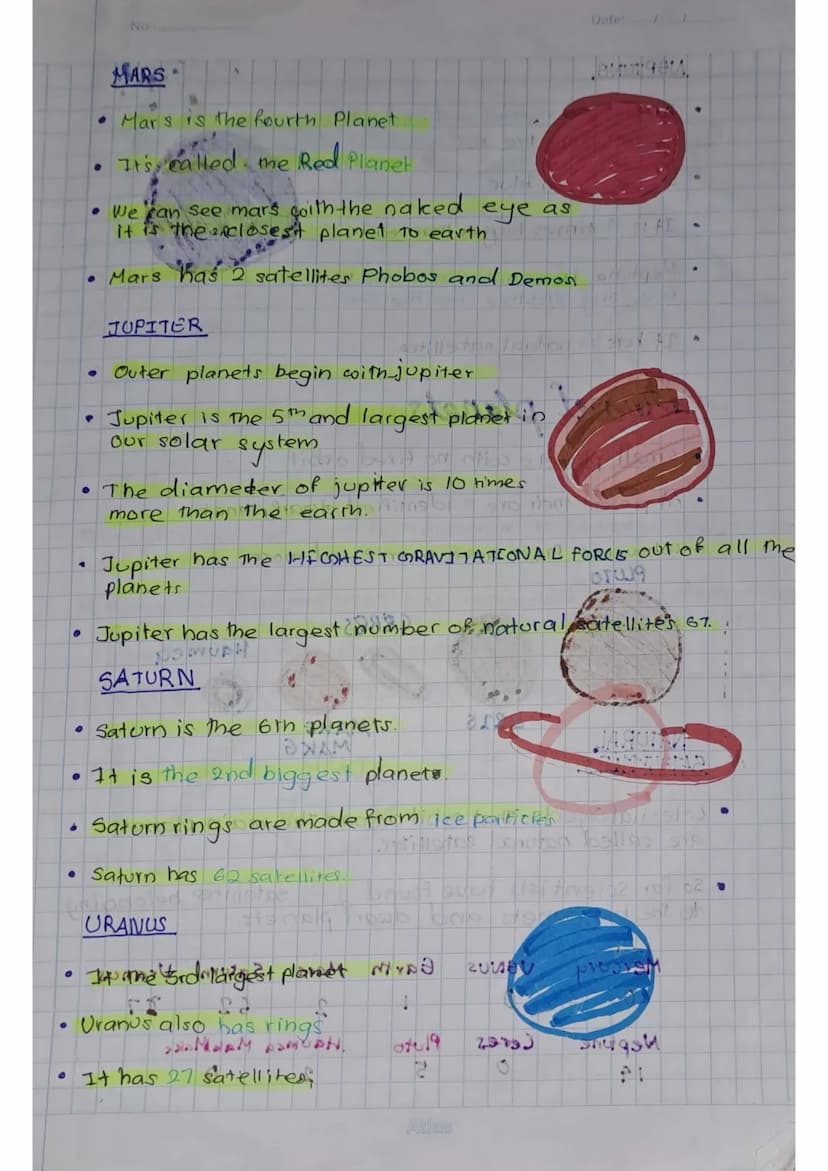 No
Date: / /
MARS
• Mars is the fourth Planet
• It's called the Red Planet
• We can see mars with the naked eye as
it is the closest planet to earth
• Mars has 2 satellites Phobos and Demos
JUPITER
• Outer planets begin with jupiter
• Jupiter is the 5th and largest planet in
our solar system
• The diameter of jupiter is 10 times
more than the earth.
• Jupiter has the HIGHEST GRAVITATIONAL FORCE out of all the
planets
• Jupiter has the largest number of natural satellites 67.
SATURN
• Saturn is the 6th planets.
• It is the 2nd biggest planet.
• Saturn rings are made from ice particles
• Saturn has 62 satellites.
URANUS
• It the 3rd largest planet
• Uranus also has rings
• It has 27 satellites,
Atlas